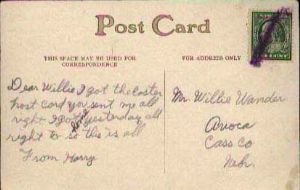 Post Card
THIS SPACE MAY BE USED FOR
CORRESPONDENCE
FOR ADDRESS ONLY
Dear Willie I got the easter
post card you sent me all
right I got yesterday all
right to so this is all
From Harry
Mr. Willie Wander
Avoca
Cass Co
Nebr.